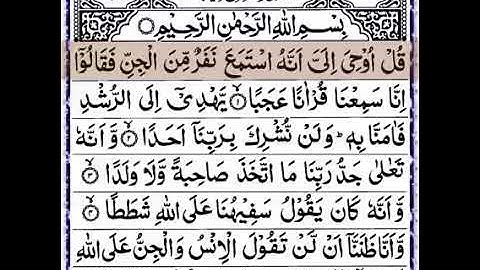 بِسْمِ اللّٰهِ الرَّحْمٰنِ الرَّحِيْمِ
قُلْ اُوْحِیَ اِلَیَّ اَنَّهُ اسْتَمَعَ نَفَرٌ مِّنَ الْجِنِّ فَقَالُوْۤا
اِنَّا سَمِعْنَا قُرْاٰنًا عَجَبًا ۙ﴿۱﴾ یَّهْدِیْۤ اِلَی الرُّشْدِ
فَاٰمَنَّا بِهٖ ؕ وَلَنْ نُّشْرِكَ بِرَبِّنَاۤ اَحَدًا ۙ﴿۲﴾ وَّ اَنَّهٗ
تَعٰلٰی جَدُّ رَبِّنَا مَا اتَّخَذَ صَاحِبَةً وَّلَا وَلَدًا ۙ﴿۳﴾
وَّ اَنَّهٗ كَانَ یَقُوْلُ سَفِیْهُنَا عَلَی اللّٰهِ شَطَطًا ۙ﴿۴﴾
وَّاَنَّا ظَنَنَّاۤ اَنْ لَّنْ تَقُوْلَ الْاِنْسُ وَالْجِنُّ عَلَی اللّٰهِ